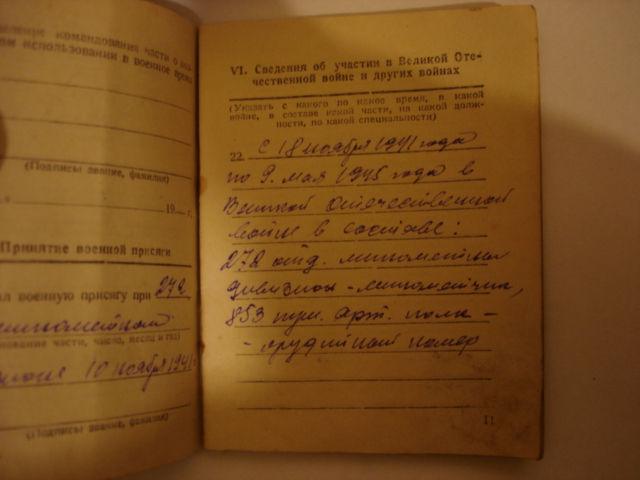 командования части о
использовании в военное время
(Подписи звание, фамилия)
19 г.
Принятие военной присяги
л военную присягу при 272
минометном
нование части, число, месяц и год)
10 ноября 1941
(Подписи звание, фамилия)
VI. Сведения об участии в Великой Оте-
чественной войне и других войнах
(Указать с какого по какое время, в какой
войне, в составе какой части, на какой долж-
ности, по какой специальности)
22. С 18 ноября 1941 года
по 9. мая 1945 года в
Великой отечественной
войне в составе:
272 отд. минометный
дивизион - минометчик,
853 пуш. арт. полк -
- орудийный номер
11